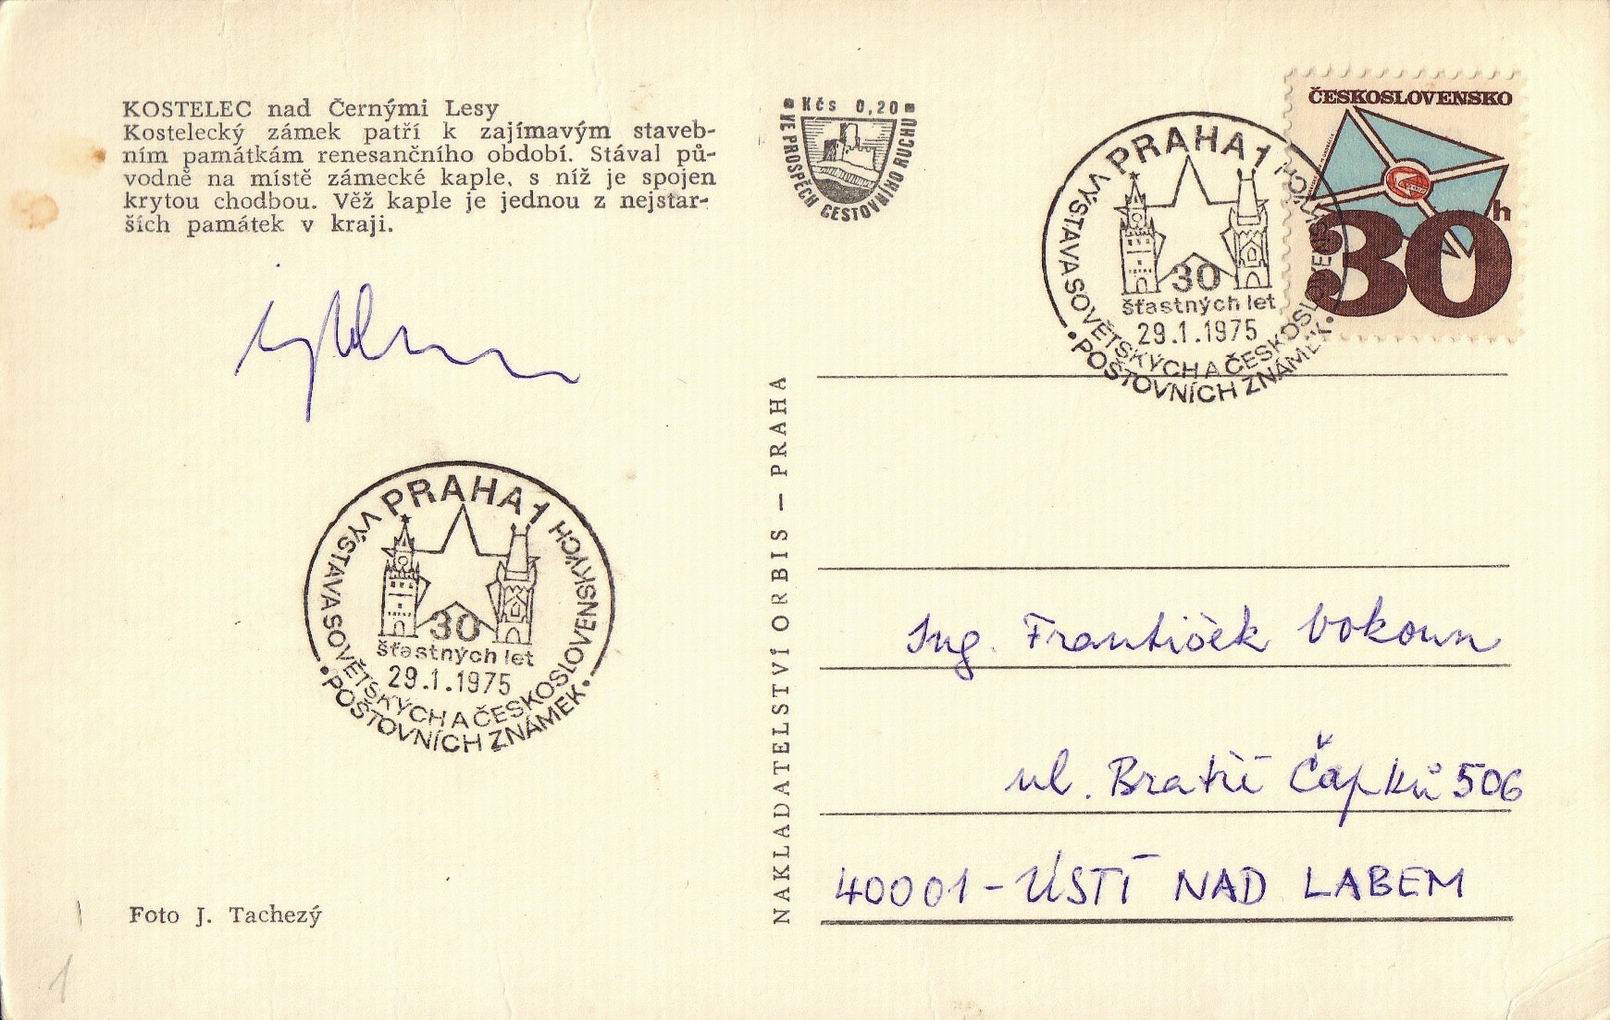 KOSTELEC nad Černými Lesy
Kostelecký zámek patří k zajímavým staveb-
ním památkám renesančního období. Stával pů-
vodně na místě zámecké kaple, s níž je spojen
krytou chodbou. Věž kaple je jednou z nejstar-
ších památek v kraji.
Kčs 0,20
VE PROSPĚCH CESTOVNÍHO RUCHU
ČESKOSLOVENSKO
30 h
PRAHA 1
VÝSTAVA SOVĚTSKÝCH A ČESKOSLOVENSKÝCH
POŠTOVNÍCH ZNÁMEK
30
šťastných let
29.1.1975
PRAHA 1
VÝSTAVA SOVĚTSKÝCH A ČESKOSLOVENSKÝCH
POŠTOVNÍCH ZNÁMEK
30
šťastných let
29.1.1975
NAKLADATELSTVÍ ORBIS – PRAHA
Ing. František Vokoun
ul. Bratří Čapků 506
40001 - ÚSTÍ NAD LABEM
Foto J. Tachezý
1